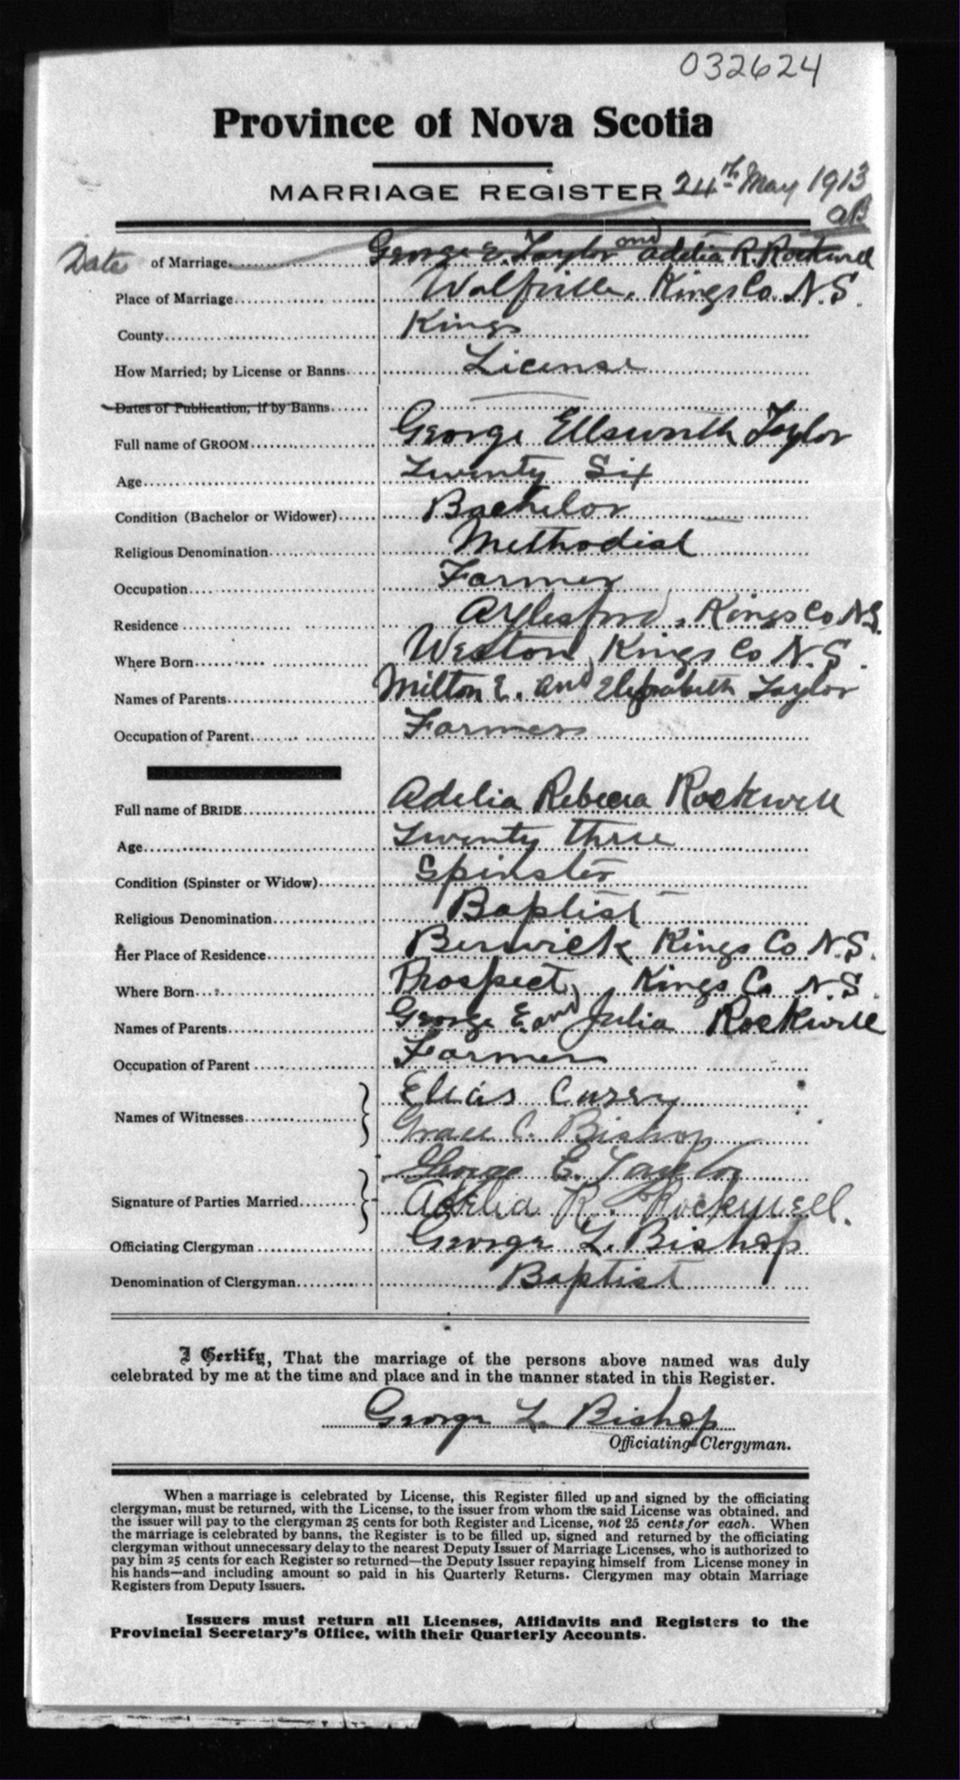 032624
Province of Nova Scotia
MARRIAGE REGISTER 24th May 1913
Date of Marriage George E. Taylor and Adelia R. Rockwell
Place of Marriage Wolfville, Kings Co. N.S.
County Kings
How Married; by License or Banns License
Dates of Publication, if by Banns
Full name of GROOM George Ellsworth Taylor
Age Twenty Six
Condition (Bachelor or Widower) Bachelor
Religious Denomination Methodist
Occupation Farmer
Residence Aylesford, Kings Co N.S.
Where Born Weston, Kings Co N.S.
Names of Parents Milton E. and Elizabeth Taylor
Occupation of Parent Farmer
Full name of BRIDE Adelia Rebecca Rockwell
Age Twenty three
Condition (Spinster or Widow) Spinster
Religious Denomination Baptist
Her Place of Residence Berwick Kings Co N.S.
Where Born Prospect, Kings Co N.S.
Names of Parents George E. and Julia Rockwell
Occupation of Parent Farmer
Names of Witnesses Elias Curry
Grace C. Bishop
George E. Taylor
Signature of Parties Married Adelia R. Rockwell.
Officiating Clergyman George L. Bishop
Denomination of Clergyman Baptist
I Certify, That the marriage of the persons above named was duly
celebrated by me at the time and place and in the manner stated in this Register.
George L. Bishop
Officiating Clergyman.
When a marriage is celebrated by License, this Register filled up and signed by the officiating
clergyman, must be returned, with the License, to the issuer from whom the said License was obtained, and
the issuer will pay to the clergyman 25 cents for both Register and License, not 25 cents for each. When
the marriage is celebrated by banns, the Register is to be filled up, signed and returned by the officiating
clergyman without unnecessary delay to the nearest Deputy Issuer of Marriage Licenses, who is authorized to
pay him 25 cents for each Register so returned—the Deputy Issuer repaying himself from License money in
his hands—and including amount so paid in his Quarterly Returns. Clergymen may obtain Marriage
Registers from Deputy Issuers.
Issuers must return all Licenses, Affidavits and Registers to the
Provincial Secretary's Office, with their Quarterly Accounts.